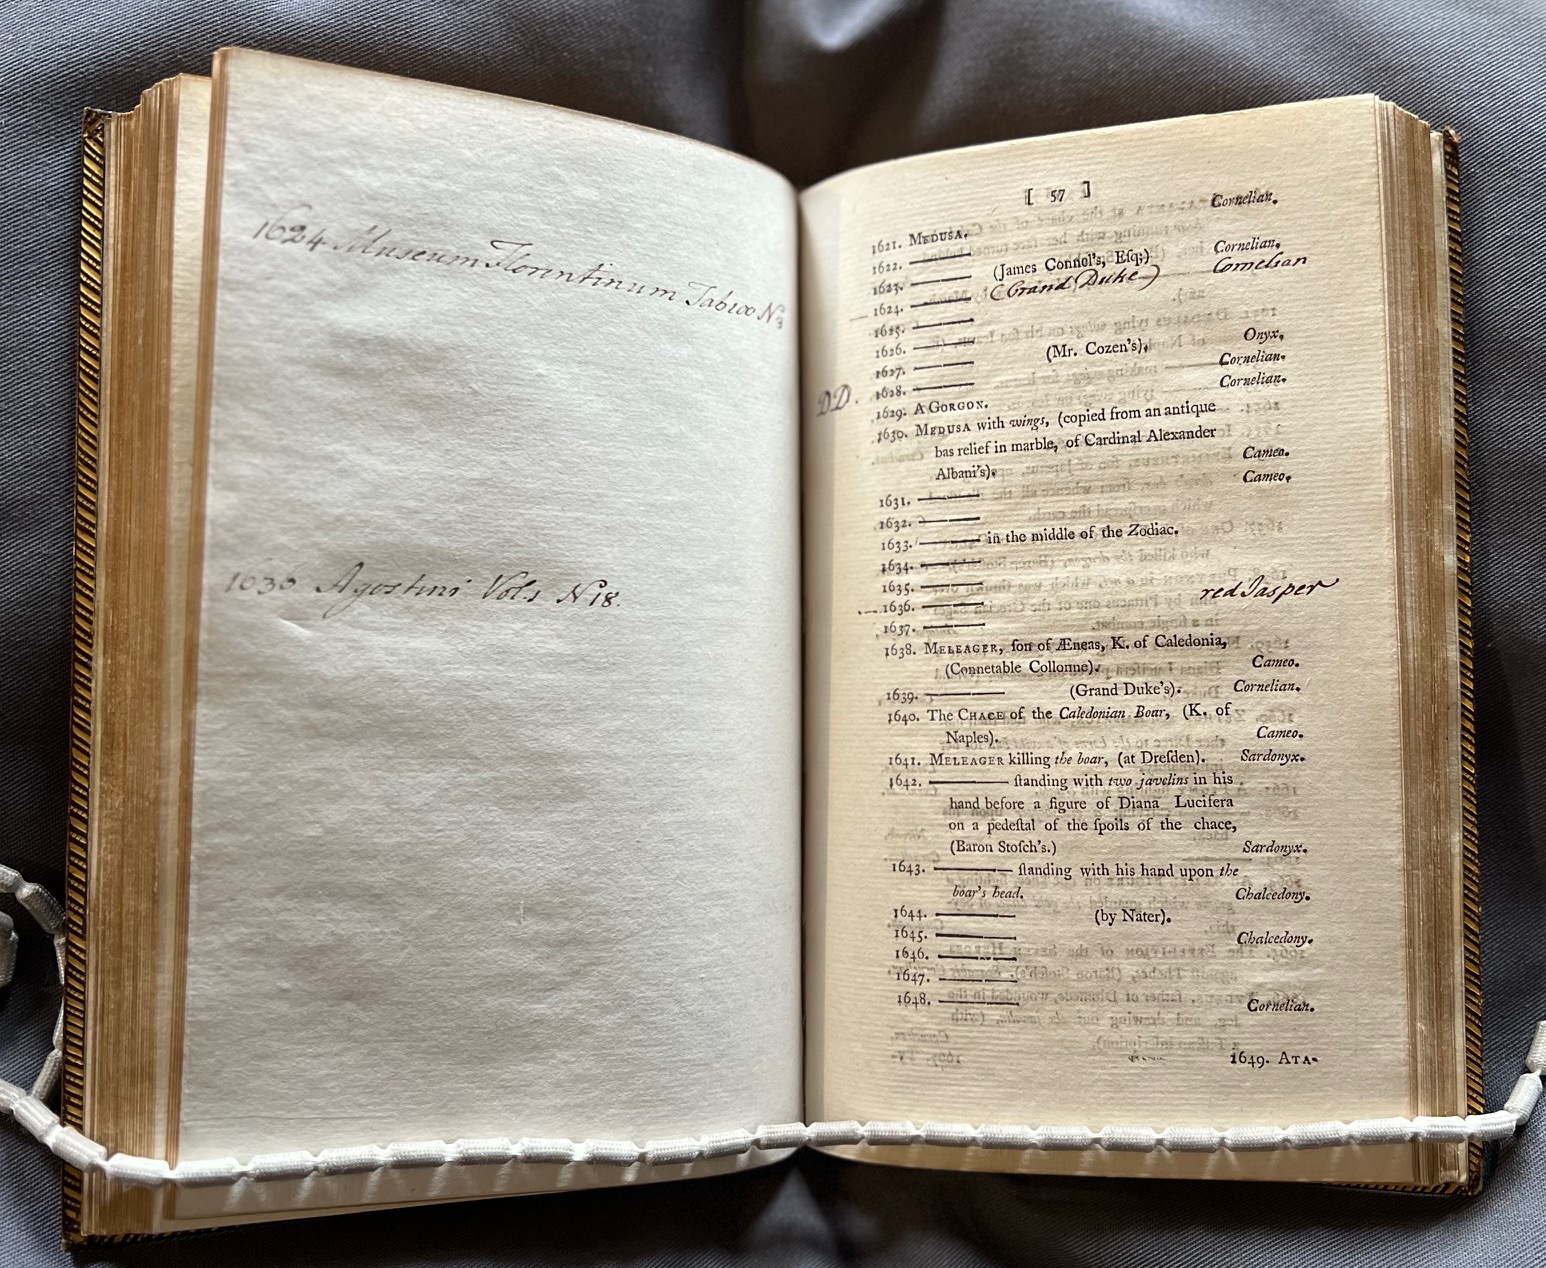 1624 Museum Florentinum Tab 100 No 3
1636 Agostini Vols No 18.
[ 57 ]
1621. MEDUSA. Cornelian.
1622. ———
1623. ——— (James Connel's, Eſq;) Cornelian.
1624. ——— (Grand Duke) Cornelian
1625. ———
1626. ———
1627. ——— (Mr. Cozen's). Onyx.
1628. ——— Cornelian.
DD. 1629. A GORGON. Cornelian.
1630. MEDUSA with wings, (copied from an antique
bas relief in marble, of Cardinal Alexander
Albani's). Cameo.
1631. ——— Cameo.
1632. ———
1633. ——— in the middle of the Zodiac.
1634. ———
1635. ———
1636. ——— red Jasper
1637. ———
1638. MELEAGER, ſon of Æneas, K. of Caledonia,
(Connetable Collonne). Cameo.
1639. ——— (Grand Duke's). Cornelian.
1640. The CHACE of the Caledonian Boar, (K. of
Naples). Cameo.
1641. MELEAGER killing the boar, (at Dreſden). Sardonyx.
1642. ——— ſtanding with two javelins in his
hand before a figure of Diana Lucifera
on a pedeſtal of the ſpoils of the chace,
(Baron Stoſch's.) Sardonyx.
1643. ——— ſtanding with his hand upon the
boar's head. Chalcedony.
1644. ——— (by Nater).
1645. ——— Chalcedony.
1646. ———
1647. ———
1648. ——— Cornelian.
1649. ATA-